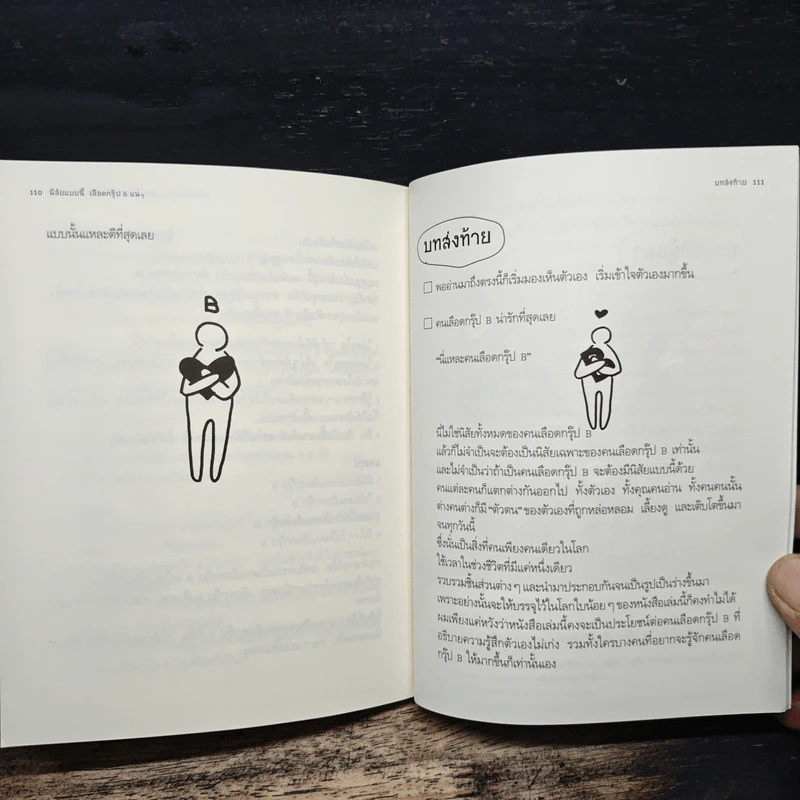 110 นิสัยแบบนี้ เลือดกรุ๊ป B แน่ๆ
แบบนั้นแหละดีที่สุดเลย
B
บทส่งท้าย 111
บทส่งท้าย
พออ่านมาถึงตรงนี้ก็เริ่มมองเห็นตัวเอง เริ่มเข้าใจตัวเองมากขึ้น
คนเลือดกรุ๊ป B น่ารักที่สุดเลย
"นี่แหละคนเลือดกรุ๊ป B"
นี่ไม่ใช่นิสัยทั้งหมดของคนเลือดกรุ๊ป B
แล้วก็ไม่จำเป็นจะต้องเป็นนิสัยเฉพาะของคนเลือดกรุ๊ป B เท่านั้น
และไม่จำเป็นว่าถ้าเป็นคนเลือดกรุ๊ป B จะต้องมีนิสัยแบบนี้ด้วย
คนแต่ละคนก็แตกต่างกันออกไป ทั้งตัวเอง ทั้งคุณคนอ่าน ทั้งคนคนนั้น
ต่างคนต่างก็มี "ตัวตน" ของตัวเองที่ถูกหล่อหลอม เลี้ยงดู และเติบโตขึ้นมา
จนทุกวันนี้
ซึ่งนั่นเป็นสิ่งที่คนเพียงคนเดียวในโลก
ใช้เวลาในช่วงชีวิตที่มีแค่หนึ่งเดียว
รวบรวมชิ้นส่วนต่างๆ และนำมาประกอบกันจนเป็นรูปเป็นร่างขึ้นมา
เพราะอย่างนั้นจะให้บรรจุไว้ในโลกใบน้อยๆ ของหนังสือเล่มนี้ก็คงทำไม่ได้
ผมเพียงแค่หวังว่าหนังสือเล่มนี้คงจะเป็นประโยชน์ต่อคนเลือดกรุ๊ป B ที่
อธิบายความรู้สึกตัวเองไม่เก่ง รวมทั้งใครบางคนที่อยากจะรู้จักคนเลือด
กรุ๊ป B ให้มากขึ้นก็เท่านั้นเอง